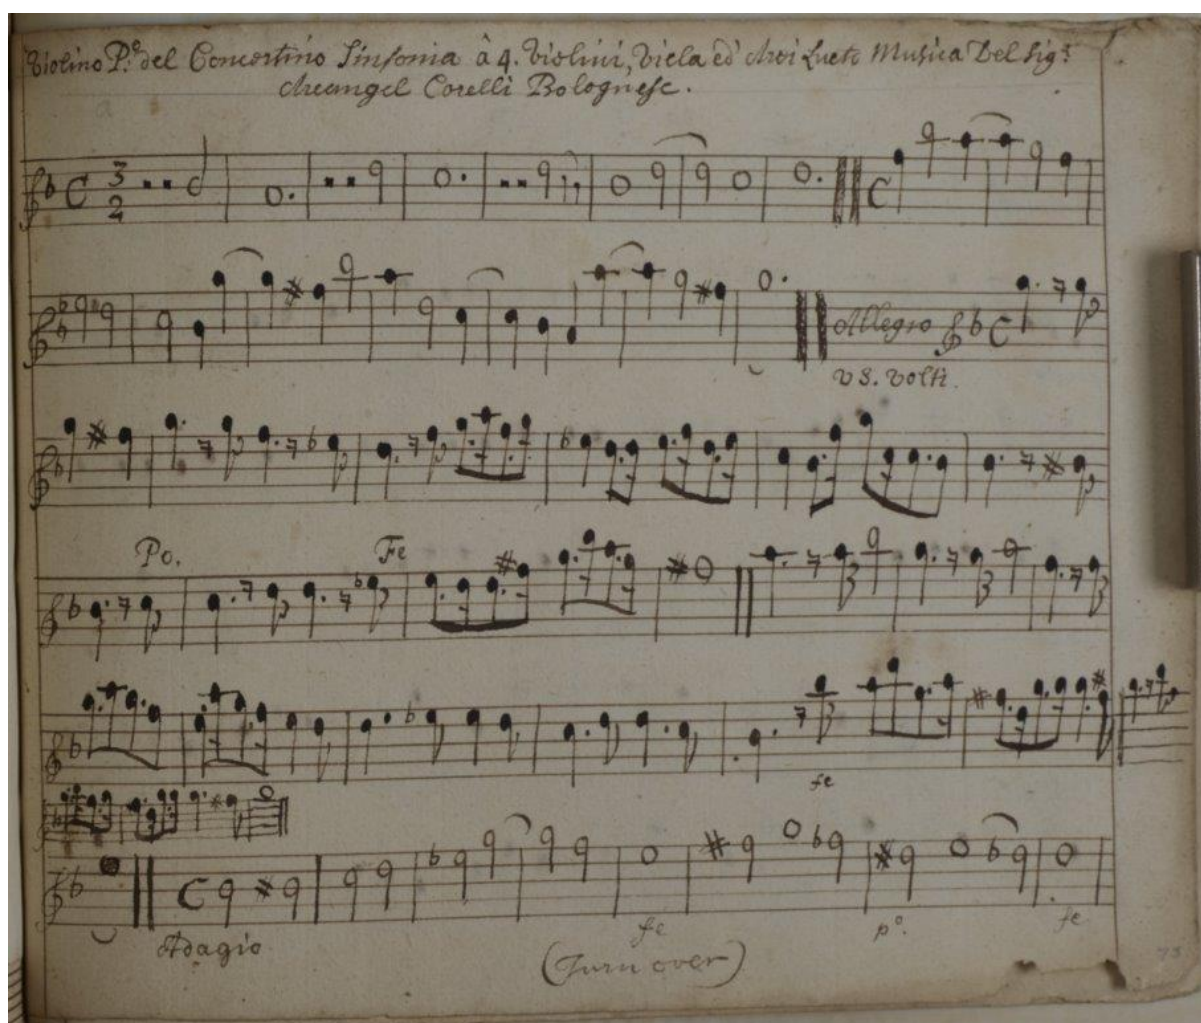 Violino P.º del Concertino Sinfonia à 4. Violini, Viola ed Arci Lueto Musica Del Sig.r
Arcangel Corelli Bolognese.
C 3 2
C
Allegro C
VS. Volti.
Po. Fe
fe
C
Adagio fe pº. fe
(Turn over)
73